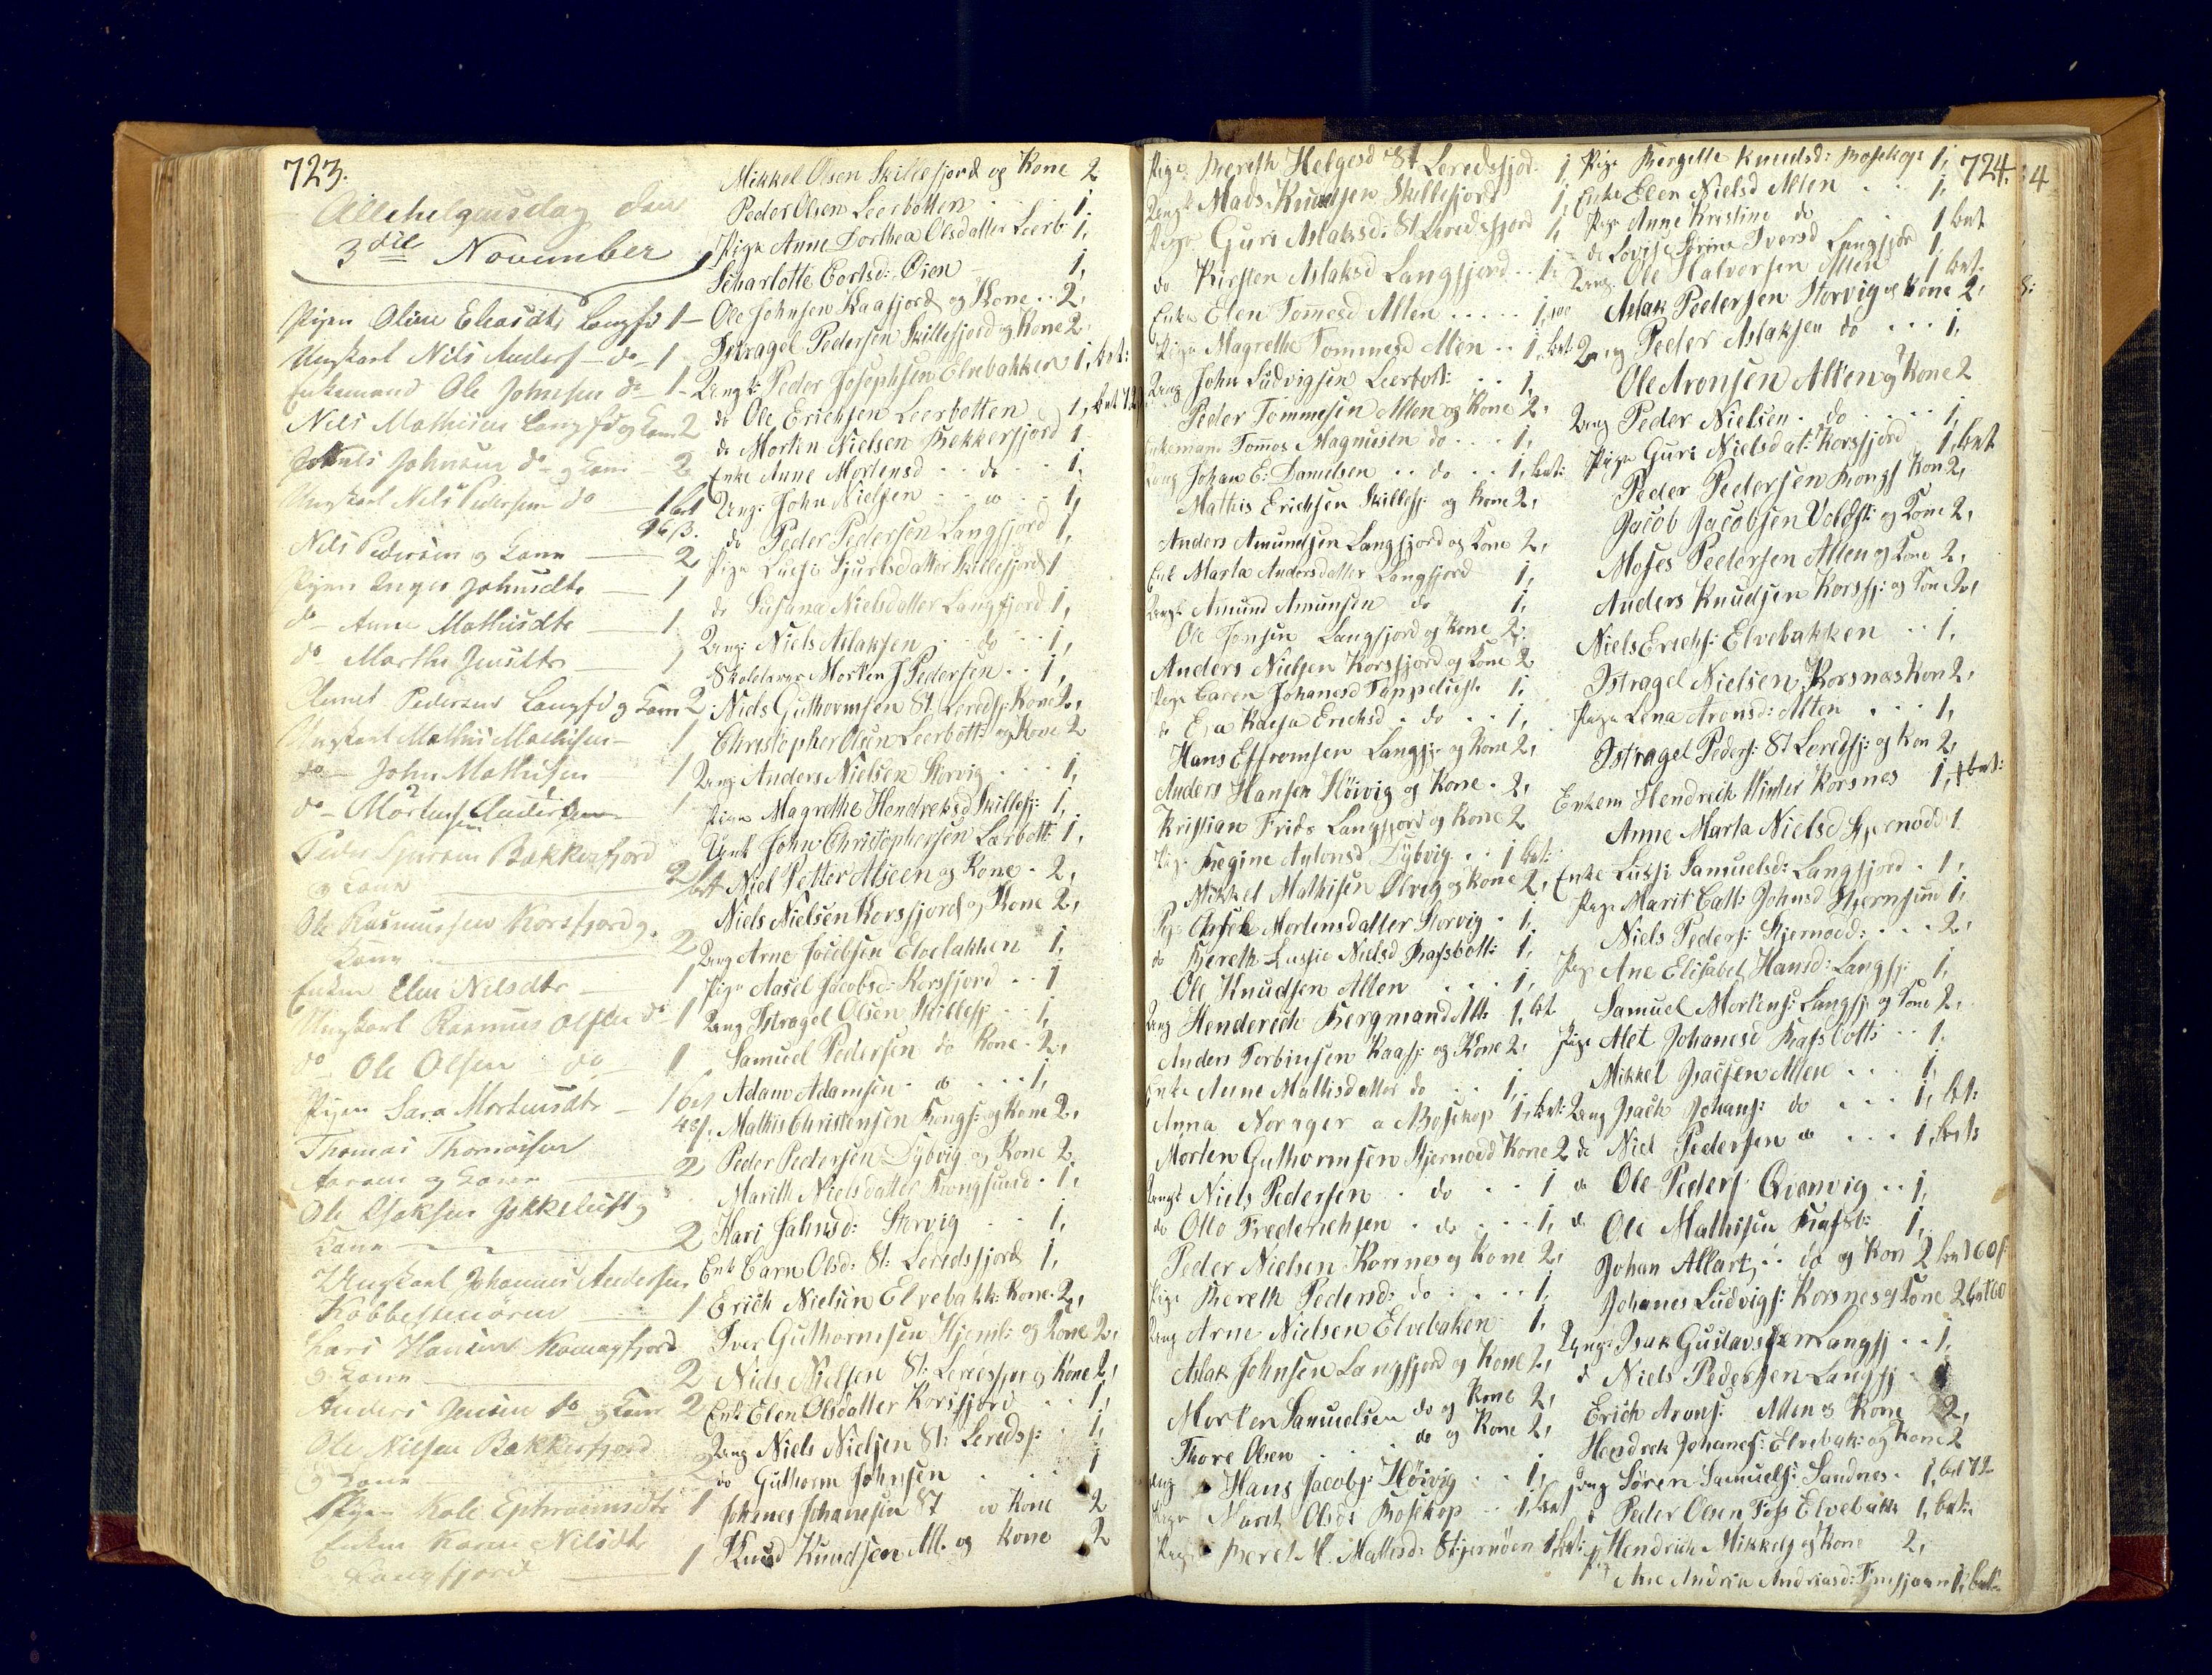 723.
Allehelgensdag den
3die November
Pigen Oline Eliasdtr Langfd 1
Ungkarl Nils Anders do 1
Enkemand Ole Johnsen do 1
Nils Mathisen Langfd og Kone 2
Johnsen do og Kone 2
Ungkarl Nils Pedersen do 1 bet
96 β.
Nils Pedersen og Kone 2
Pigen Inger Johnsdtr 1
do Anne Mathisdtr 1
do Marthe Jensdtr 1
Pedersen Langfd og Kone 2
Ungkarl Mathis Mathisen 1
do John Mathisen 1
do Mortensen Andersen 1
Peder Bekkerfjord
og Kone 2 bet
Ole Rasmussen Korsfjord og
Kone 2
Enken Elen Nilsdtr 1
Ungkarl Rasmus Olsen do 1
do Ole Olsen do 1
Pigen Sara Mortensdtr 1 bet
48β.
Thomas Thomassen
Aaroen og Kone 2
Ole Isaksen Jøkkeluft og
Kone 2
Ungkarl Johannes Andersen
Kobbesmøren 1
Lars Hansen Komagfjord
og Kone 2
Anders Jensen do og Kone 2
Ole Nilsen Bekkerfjord
og Kone 2
Pigen Kale Ephraimsdtr 1
Enken Karen Nilsdtr
Langfjord 1
Mikkel Olsen Skillefjord og Kone 2
Peder Olsen Leerbotten 1
Pige Anne Dorthea Olsdatter Leerb: 1,
Scharlotte Eertsd: Øien 1,
Ole Johnsen Kaafjord og Kone 2,
Istragel Pedersen Skillefjord og Kone 2,
Ungk: Peder Josephsen Elvebakken 1, bet:
do Ole Erichsen Leerbotten 1, bet 72
do Morten Nielsen Bekkerfjord 1
Enke Anne Mortensd do 1,
Ung: John Nielsen do 1,
do Peder Pedersen Langfjord 1,
Pige Lusi Sjursdatter Skillefjord 1
do Susana Nielsdatter Langfjord 1,
Ung: Niels Aslaksen do 1,
Skolelærer Morten J Pedersen 1,
Niels Guthormsen St. Leredsfj: Kone 2,
Christopher Olsen Leerbott: og Kone 2
Ung: Anders Nielsen Storvig 1,
Pige Magrethe Hendreksd Skillefj: 1,
Unk John Christophersen Lerbott: 1,
Niel Petter Alseen og Kone 2,
Niels Nielsen Korsfjord og Kone 2,
Ung Arne Jocobsen Elvebakken 1,
Pige Aasel Jacobsd: Korsfjord 1
Ung Istragel Olsen Skillefj 1,
Samuel Pedersen do Kone 2,
Adam Adamsen do 1,
Mathis Christensen Kongs: og Kone 2,
Peder Pedersen Dybvig og Kone 2,
Marith Nielsdatter Kongsund 1,
Kari Johnsd: Storvig 1,
Enk Carn Olsd: St: Leredsfjord 1,
Erich Nielsen Elvebakk: Kone 2,
Iver Guthormsen Hjeml: og Kone 2,
Niels Nielsen St: Leredsfjor og Kone 2,
Enk Elen Olsdatter Korsfjord 1,
Ung Niels Nielsen St: Leredsf: 1,
do Guthorm Johnsen 1
Johanes Johanesen St do Kone 2
Knud Knudsen Alt. og Kone 2
724.
4
Pige: Bereth Helgesd St Leredsfjord 1
Ungk Mads Knudsen Skillefjord 1,
Pige Guri Aslaksd: St Leredsfjord 1,
do Kirsten Aslaksd Langfjord 1,
Enke Elen Tomesd Alten 1,
Pige Magrethe Tommesd Alten 1, bet:
Ung John Ludvigsen Leerbott: 1,
Peder Tommesen Alten og Kone 2,
Enkemann Tomas Magnusen do 1,
Ung Johan E: Danielsen do 1, bet:
Mathis Erichsen Skillefj: og Kone 2,
Anders Amundsen Langfjord og Kone 2,
Enk Marta Andersdatter Langfjord 1,
Ung: Amund Amunsen do 1,
Ole Jonsen Langfjord og Kone 2,
Anders Nielsen Korsfjord og Kone 2
Pige Caren Johanesd Tappeluft 1,
do Eva Kaisa Erichsd do 1,
Hans Effromsen Langfj: og Kone 2,
Anders Hansen Høivig og Kone 2,
Kristian Frids Langfjord og Kone 2
Pig: Regine Antonsd Dybvig 1 bet:
Mikkel Mathisen Olvig og Kone 2,
Pig: Mortensdatter Storvig 1,
do Bereth Lussie Nielsd Rafsbott: 1,
Ole Knudsen Alten 1,
Ung Henderich Bergmand Alt: 1, bet
Anders Torbinsen Kaafj: og Kone 2,
Enke Anne Mathisdatter do 1,
Anna Norager a Bosekop 1, bet:
Morten Guthormsen Stjernoed Kone 2
Ungk Niels Pedersen do 1
do Otto Frederichsen do 1,
Peder Nielsen Korsnes og Kone 2,
Pige Bereth Pedersd: do 1,
Ung Arne Nielsen Elvebaken 1,
Aslak Johnsen Langfjord og Kone 2,
Morten Samuelsen do og Kone 2,
Thore Olsen do og Kone 2,
Ung Hans Jacobs: Høivig 1,
Pige Marit Olsd: Bosekop 1, bet
Pige Beret M. Mattisd: Stjernøen 1, bet:
Pige Bergitte Knudsd: Bosekop: 1,
Enke Elen Nielsd Alten 1,
Pige Anne Kristine do 1 bet
do Lovise Serine Iversd Langfjord 1,
Ung: Ole Halvorsen Alten 1 bet.
Aslak Pedersen Storvig og Kone 2,
Ung Peder Aslaksen do 1,
Ole Aronsen Alten og Kone 2
Ung Peder Nielsen do 1,
Pige Guri Nielsdat: Korsfjord 1, bet
Peder Pedersen Kongs Kon 2,
Jacob Jacobsen Voldst: og Kone 2,
Moses Peedersen Alten og Kone 2,
Anders Knudsen Korsfj: og Kon 2,
Niels Erichs: Elvebakken 1,
Istragel Nielsen Korsnæs Kon 2,
Pige Lena Aronsd: Alten 1,
Istragel Peders: St Leredsfj: og Kon 2,
Enkem Hendrich Winter Korsnes 1, bet:
Anne Marta Nielsd Stjernødd 1
Enke Lussi Samuelsd: Langfjord 1,
Pige Marit Cath: Johnsd Stjernsund 1,
Niels Peders: Stjernødd: 2,
Pige Ane Elisabet Hansd: Langfj: 1,
Samuel Mortens: Langfj. og Kone 2,
Pige Alet Johanesd Rafsbott: 1,
Mikkel Isacsen Alten 1,
Ung Isach Johans: do 1, bet:
do Niel Pedersen do 1, bet:
do Ole Peders Qvenvig 1,
do Ole Mathisen Rafsb: 1,
Johan Allart do og Kon 2 bet 60β
Johanes Ludvigs: Korsnes og Kone 2 bet 60
Ung: Isak Gustavsen Langfj 1,
d Niels Pedersen Langfj
Erich Arons: Alten og Kone 2,
Hendrek Johanes: Elvebak: og Kone 2
Ung Søren Samuels: Sandnes 1, bet 72
Peder Olsen Elvebakk 1, bet:
Hendrich Mikkels og Kone 2,
Ane Andrea Andreasd: 1, bet: